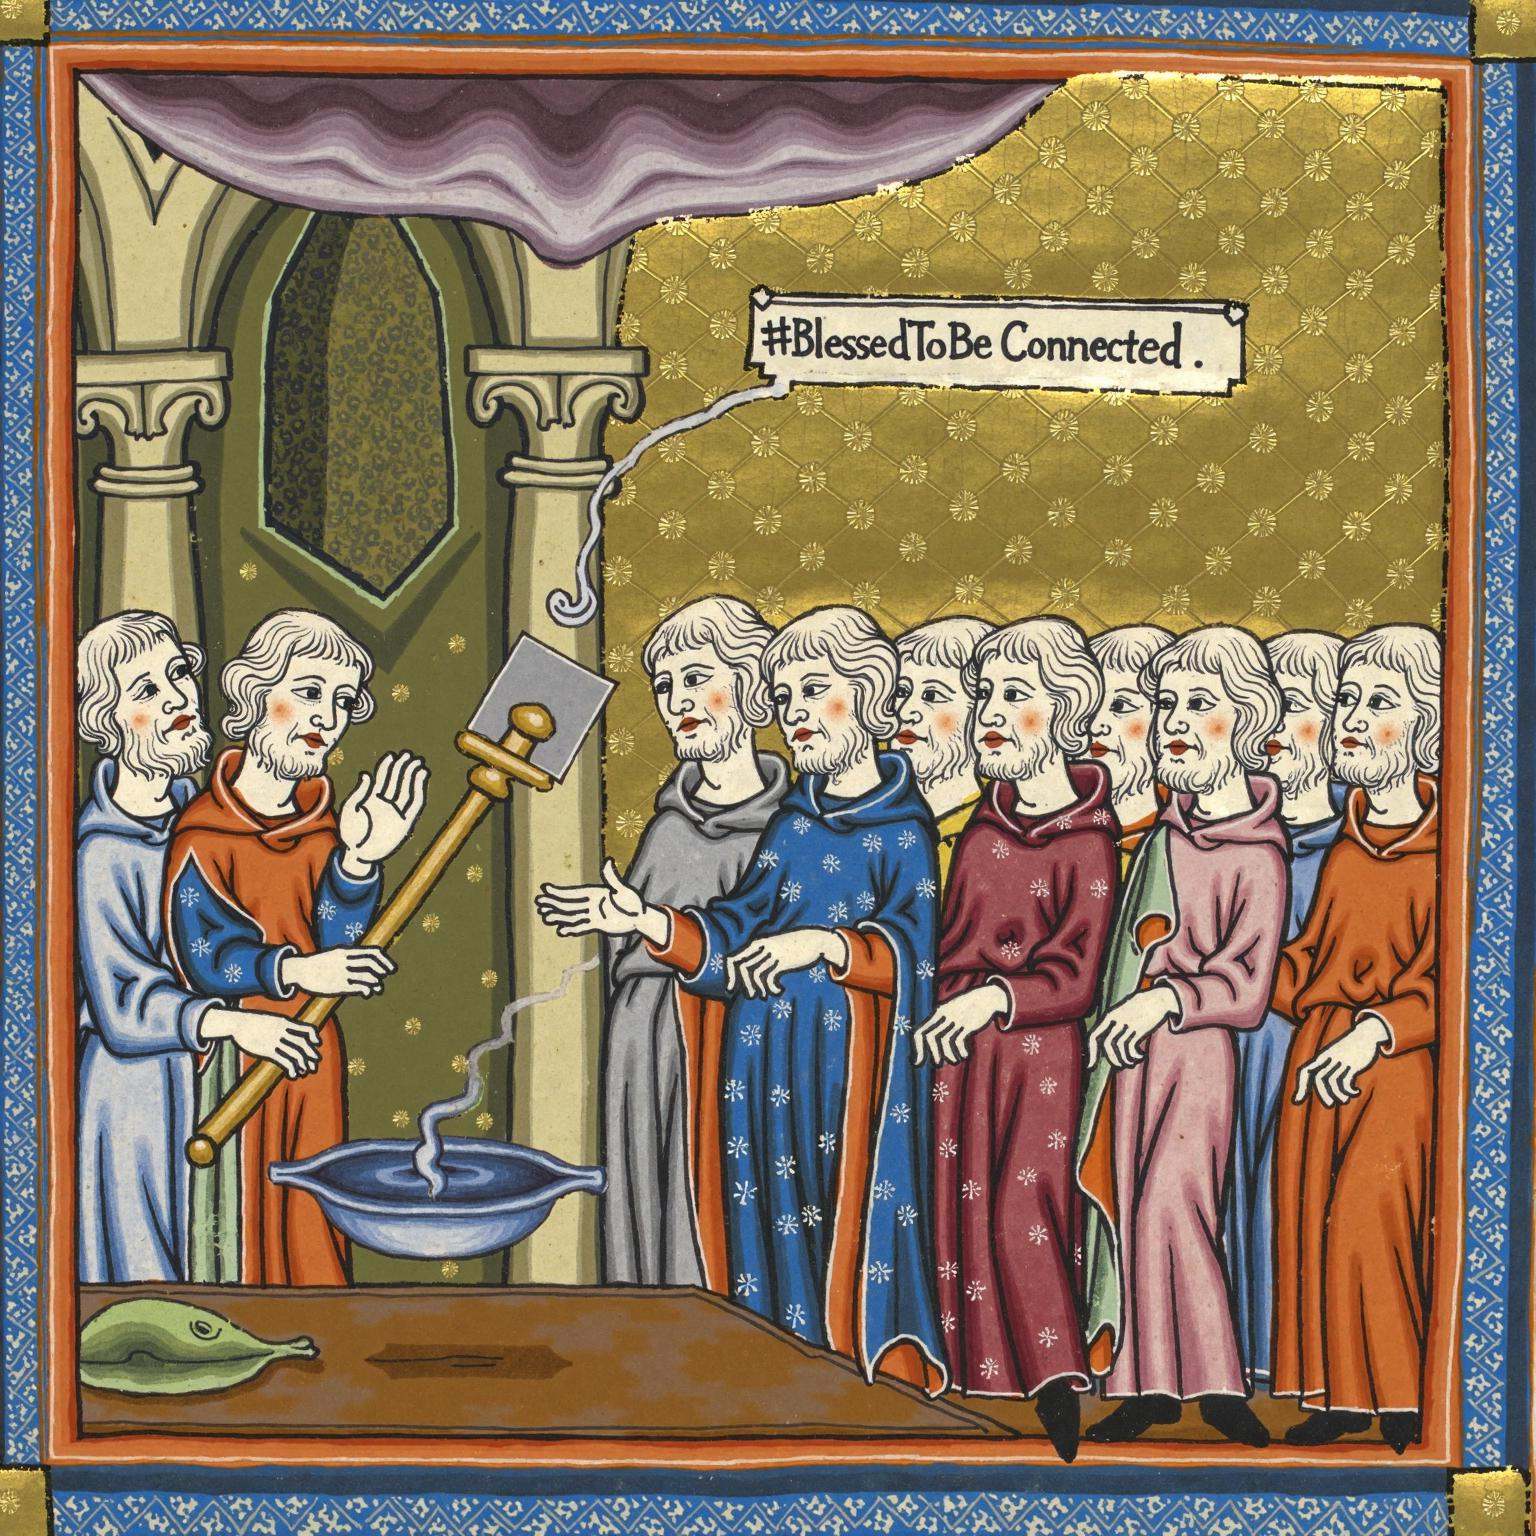 #BlessedToBe Connected .